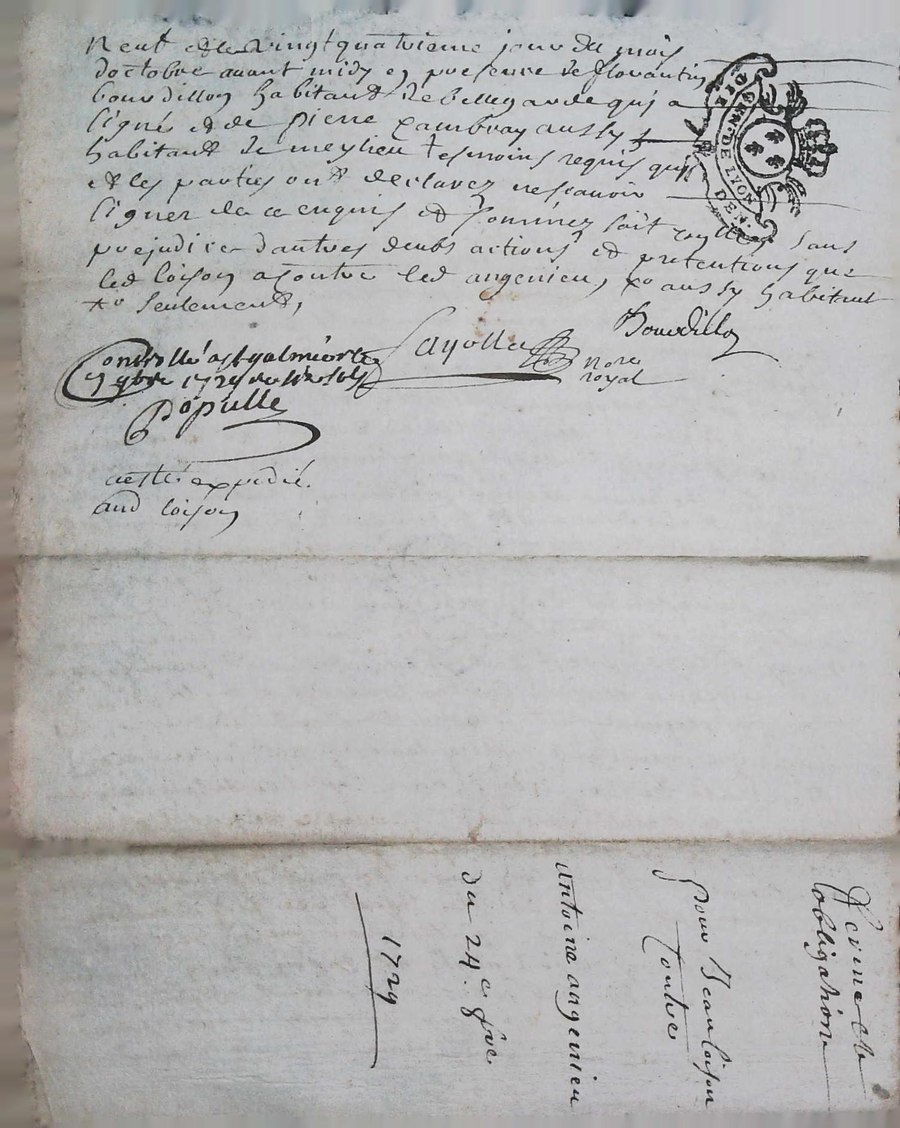 neuf et le vingtquatrieme jour du mois
doctobre avant midy en presence de florantin
bourdillon habitant de bellegarde qui a
signé et de pierre cambray aussy
habitant de meylieu tesmoins requis qui
et les parties ont declarez nescavoir
signer de ce enquis et sommez soit sans
prejudice dautres deubs actions et pretentions que
led loison a contre led angenieu, aussy habitant
seulement,
Bourdillon
Layolle
nore
royal
Controllé a st galmier le
9bre 1729
Populle
aesté expedié.
aud loison
GEN. DE LYON
obligation
pour Jean loison
Contre
antoine angenieu
du 24e 8bre
1729